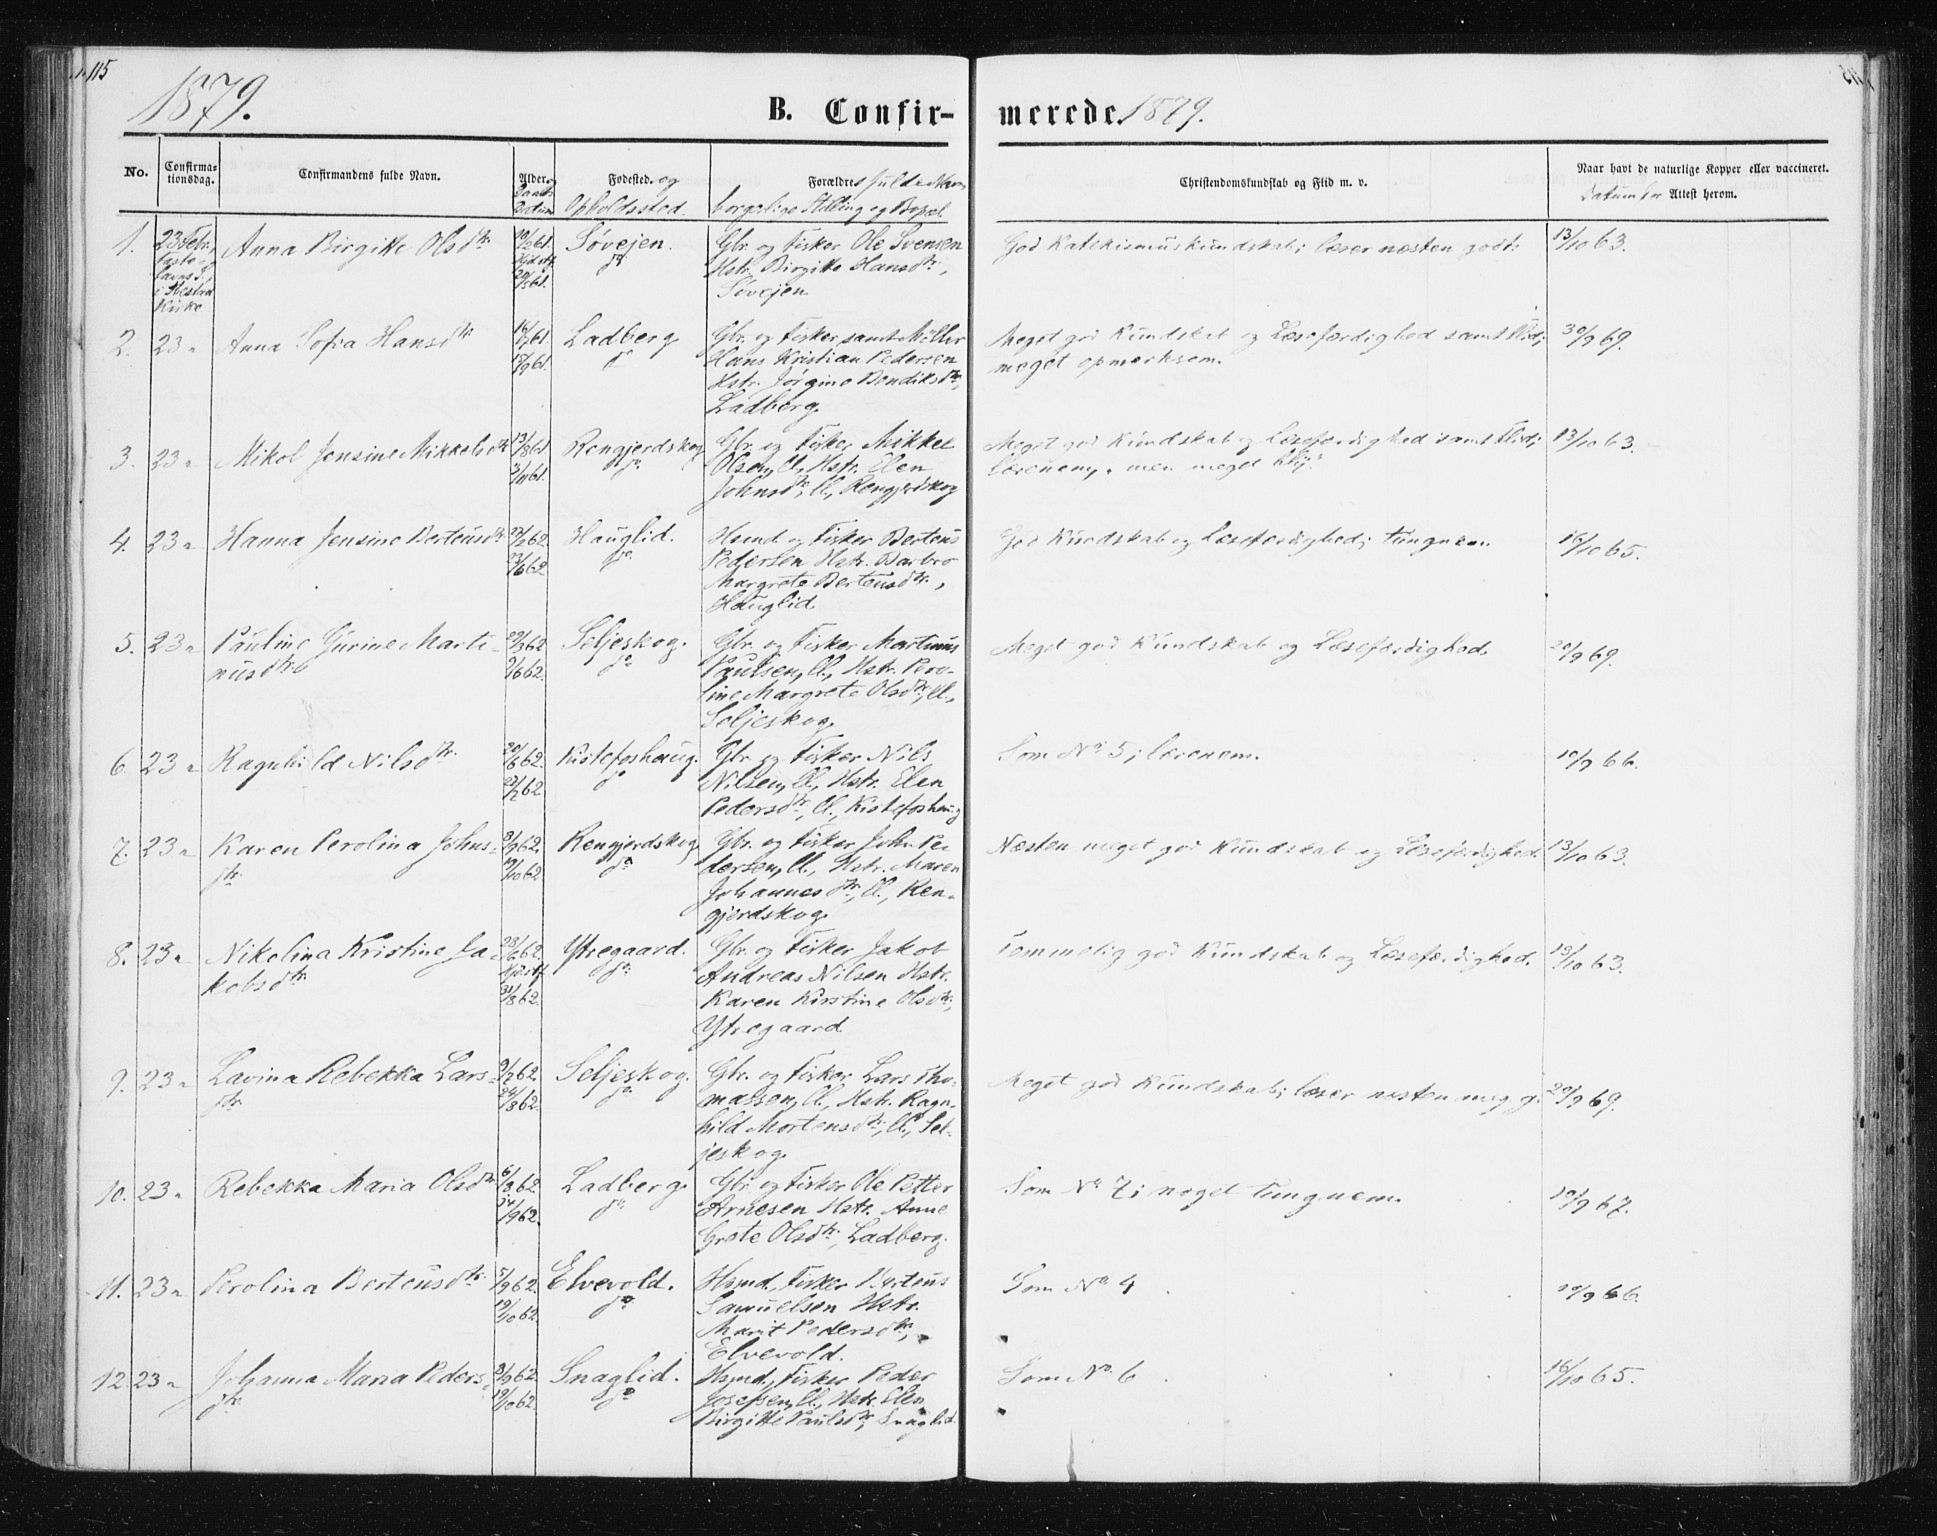 115
1879.
B. Confir-
merede 1879.
No.
Confirma-
tionsdag.
Confirmandens fulde Navn.
Alder og
Daabs
Datum
Fødested. og
Opholdssted.
Forældres fulde Navn
borgelige Stilling og Bopæl
Christendomskundskab og Flid m. v.
Naar havt de naturlige Kopper eller vaccineret.
Datum for Attest herom.
1.
23 Febr.
i Hestad
Kirke
Anna Birgitte Olsdtr.
Søvejen.
do
Gbr. og Fisker Ole Svensen
Hstr. Birgitte Hansdtr.,
Søvejen
God Katekismuskundskab; læser næsten godt.
13/10 63.
2. 23 "
Anna Sofia Hansdtr
17/9 61.
Ladberg
do
Gbr. og Fisker samt Møller
Hans Kristian Pedersen
Hstr. Jørgine Bendiksdtr.,
Ladberg.
Meget god Kundskab og Læsefærdighed samt Flid;
meget opmerksom.
30/9 69.
3. 23 "
Mikol Jensine Mikkelsdtr
13/8 61
3/11 61.
Rengjerdskog
do
Gbr. og Fisker Mikkel
Olsen, U., Hstr. Elen
Johnsdtr., U., Rengjerdskog
Meget god Kundskab og Læsefærdighed samt Flid;
Lærenem, men meget
13/10 63.
4. 23 "
Hanna Jensine Berteusdtr
27/2 62.
Hauglid.
do
Hsmd og Fisker Berteus
Pedersen Hstr. Barbro
Margrete Berteusdtr.,
Hauglid
God Kundskab og Læsefærdighed; tungnem.
16/10 65.
5. 23 "
Pauline Gurine Marti-
nusdtr.
9/6 62.
Seljeskog.
do
Gbr. og Fisker Martinus
Paulsen, U., Hstr. Pero-
line Margrete Olsdtr., U.,
Seljeskog
Meget god Kundskab og Læsefærdighed.
20/9 69.
6. 23 "
Ragnhild Nilsdtr.
20/6 62.
27/7 62.
Kistefoshaug.
do
Gbr og Fisker Nils
Nilsen, U., Hstr. Elen
Pedersdtr., U., Kistefoshaug
Som No 5; lærenem.
10/9 66.
7. 23 "
Karen Perolina Johns-
dtr.
8/9 62.
19/10 62
Rengjerdskog
do
Gbr. og Fisker John Pe
dersen, U., Hstr. Maren
Johannesdtr., U., Ren-
gjerdskog
Næsten meget god Kundskab og Læsefærdighed.
13/10 63.
8. 23 "
Nikolina Kristine Ja-
kobsdtr.
28/6 62.
31/8 62.
Ytregaard.
do
Gbr. og Fisker Jakob
Andreas Nilsen Hstr.
Karen Kirstine Olsdtr.,
Ytregaard
Temmelig god Kundskab og Læsefærdighed.
13/10 63.
9. 23 "
Lavina Rebekka Lars-
dtr.
9/7 62.
24/8 62.
Seljeskog.
do
Gbr. og Fisker Lars Tho-
massen, U., Hstr. Ragn-
hild Mortensdtr., U., Sel-
jeskog
Meget god Kundskab; læser næsten meg. g.
20/9 69.
10. 23 "
Rebekka Maria Olsdtr
6/8 62
14/9 62.
Ladberg.
do
Gbr og Fisker Ole Petter
Arnesen Hstr. Anne
Grete Olsdtr., Ladberg.
Som No 7; noget tungnem.
10/9 67.
11. 23 "
Perolina Berteusdtr.
5/9 62.
19/10 62.
Elvevold.
do
Hsmd., Fisker Berteus
Samuelsen Hstr.
Marit Pedersdtr.,
Elvevold.
Som No 4
10/9 66.
12. 23 "
Johanna Maria Peders-
dtr.
8/9 62.
19/10 62.
Snaglid.
do
Hsmd., Fisker Peder
Josefsen, U., Hstr. Elen
Birgitte Paulsdtr., Snaglid.
Som No. 6
16/10 65.